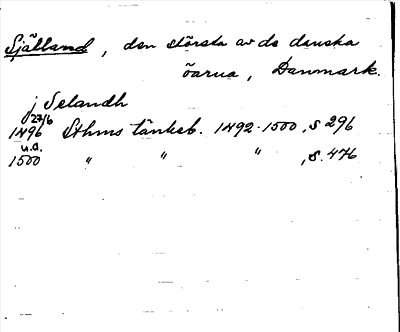 Själland, den största av de danska
öarna, Danmark.
j Selandh
27/6
1496 Sthms tänkeb. 1492-1500, s 296
u.a.
1500 " " " , s. 476